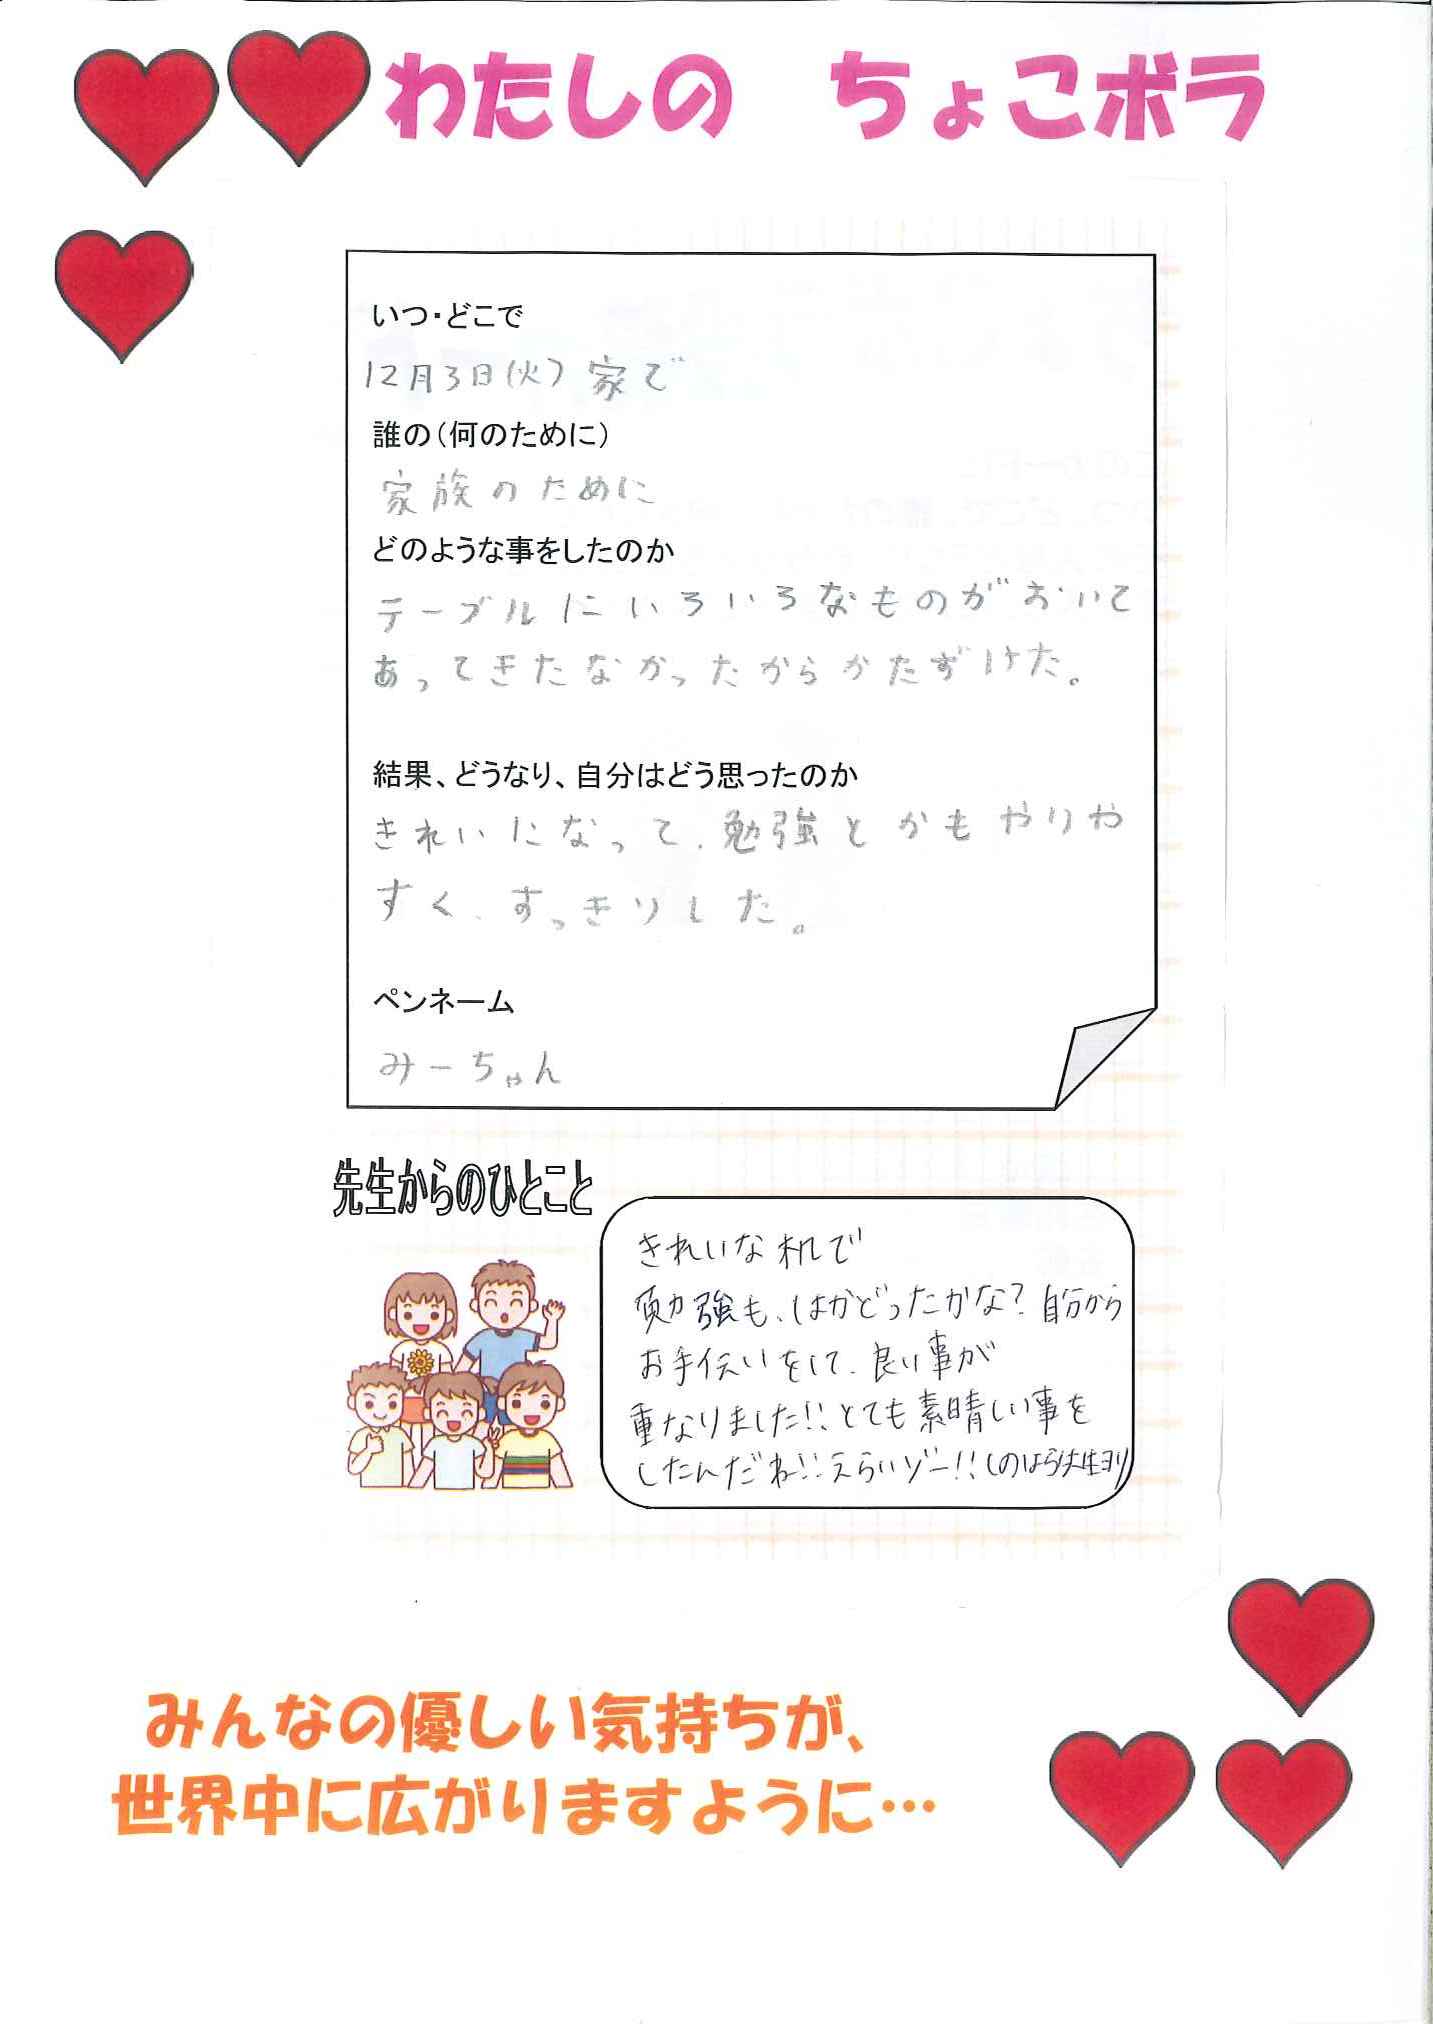 わたしの ちょこボラ
いつ・どこで
12月3日(火) 家で
誰の(何のために)
家族のために
どのような事をしたのか
テーブルにいろいろなものがおいて
あってきたなかったからかたずけた。
結果、どうなり、自分はどう思ったのか
きれいになって、勉強とかもやりや
すく、すっきりした。
ペンネーム
みーちゃん
先生からのひとこと
きれいな机で
勉強も、はかどったかな?自分から
お手伝いをして、良い事が
重なりました!!とても素晴しい事を
したんだね!!えらいゾー!!(のはら先生ヨリ)
みんなの優しい気持ちが、
世界中に広がりますように…